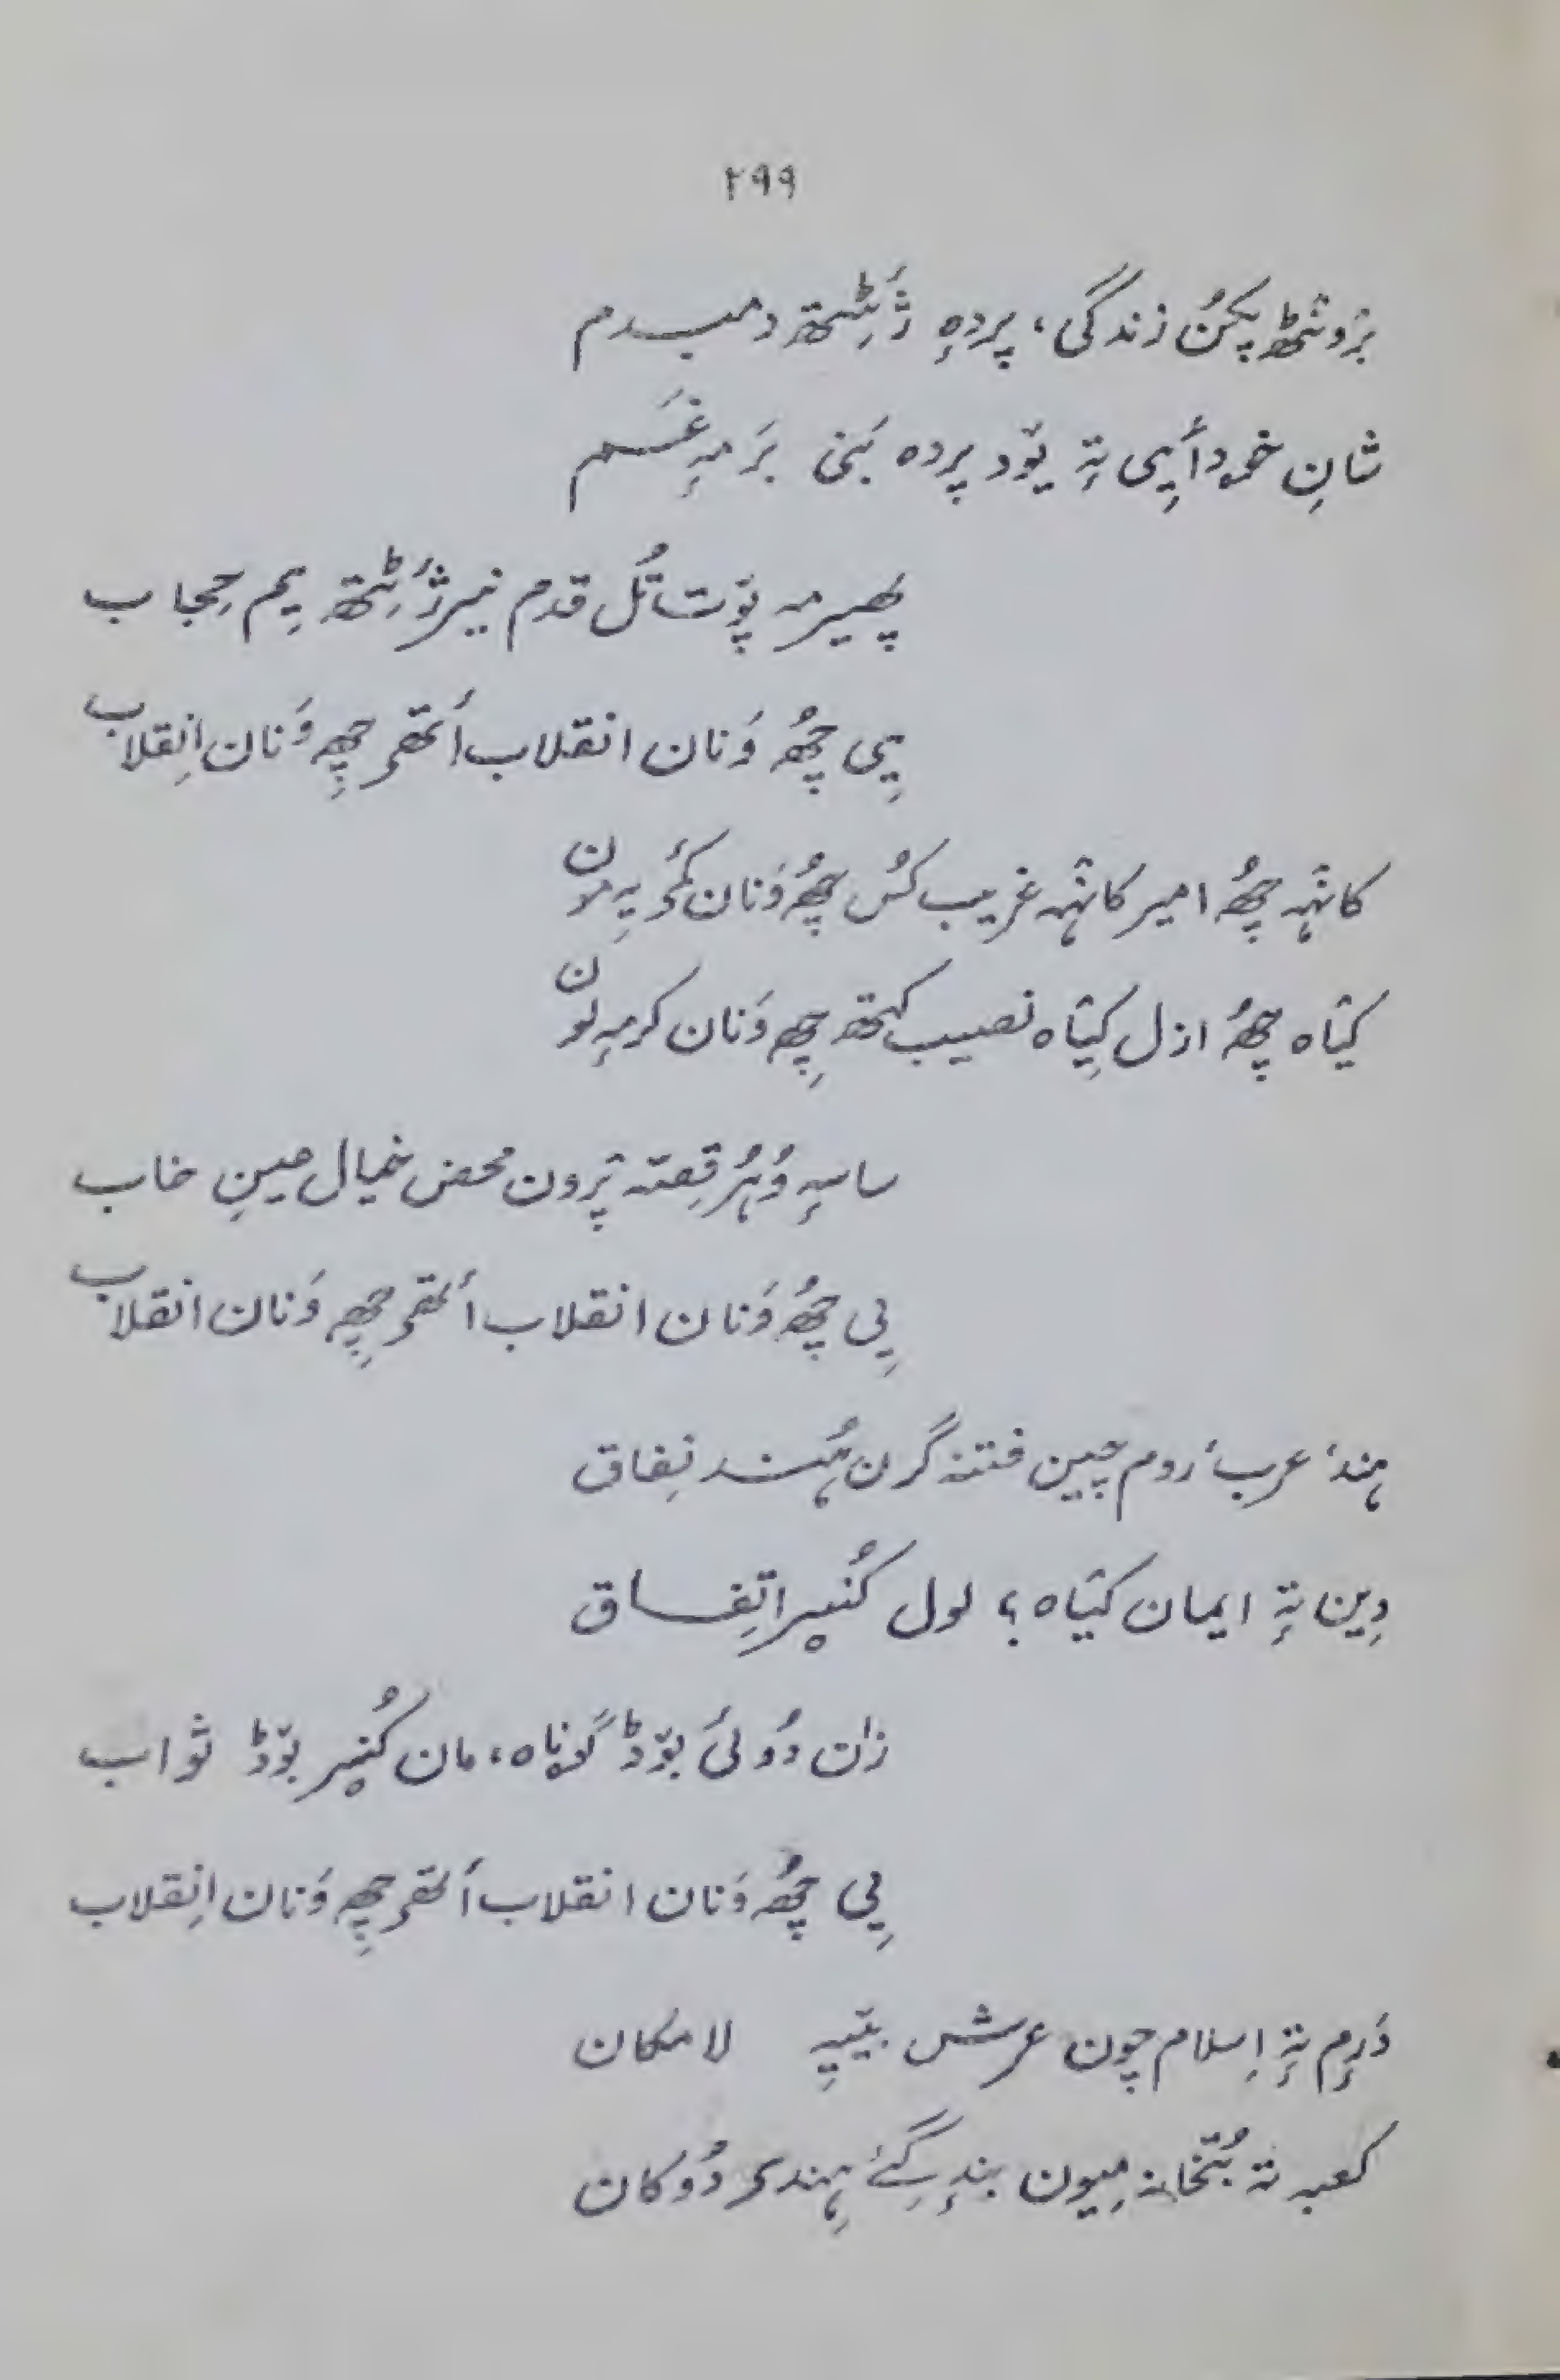 ۲۹۹
برٛونٹھ پکُن زندگی، پردٕہ ژٔٹِتھ دمبدم
شانِ خودأیی تہٕ یوٚد پردہ بَنی بَر مہٕ غَم
پھیر مہ پوٚت تُل قدم نیر ژٔٹِتھ یِم حِجاب
یِی چھُ وَنان انقلاب أتھۍ چھِ وَنان اِنقلاب
کانٛہہ چھُ امیر کانٛہہ غریب کُس چھُ وَنان کٔمۍ یہِ مون
کیٛاہ چھُ ازل کیٛاہ نصیب کَتھ چھِ وَنان کرمہٕ لون
ساسہٕ وُہُر قِصّہ پرٛون محض خیال عینِ خاب
یِی چھُ وَنان انقلاب أتھۍ چھِ وَنان انقلاب
ہندٔ عربٔ روم چین فتنہ گرن ہُند نِفاق
دِین تہٕ ایمان کیٛاہ؟ لول کُنیر اتِفاق
زان دُولیُ بوٚڈ گوناہ، مان کُنیر بوٚڈ ثواب
یِی چھُ وَنان انقلاب أتھۍ چھِ وَنان اِنقلاب
دَرٕم تہٕ اِسلام چون عرش بیٚیہِ لامکان
کعبہ تہ بُتخانہ میون بندٕ گیٚے ہِندۍ دُوکان